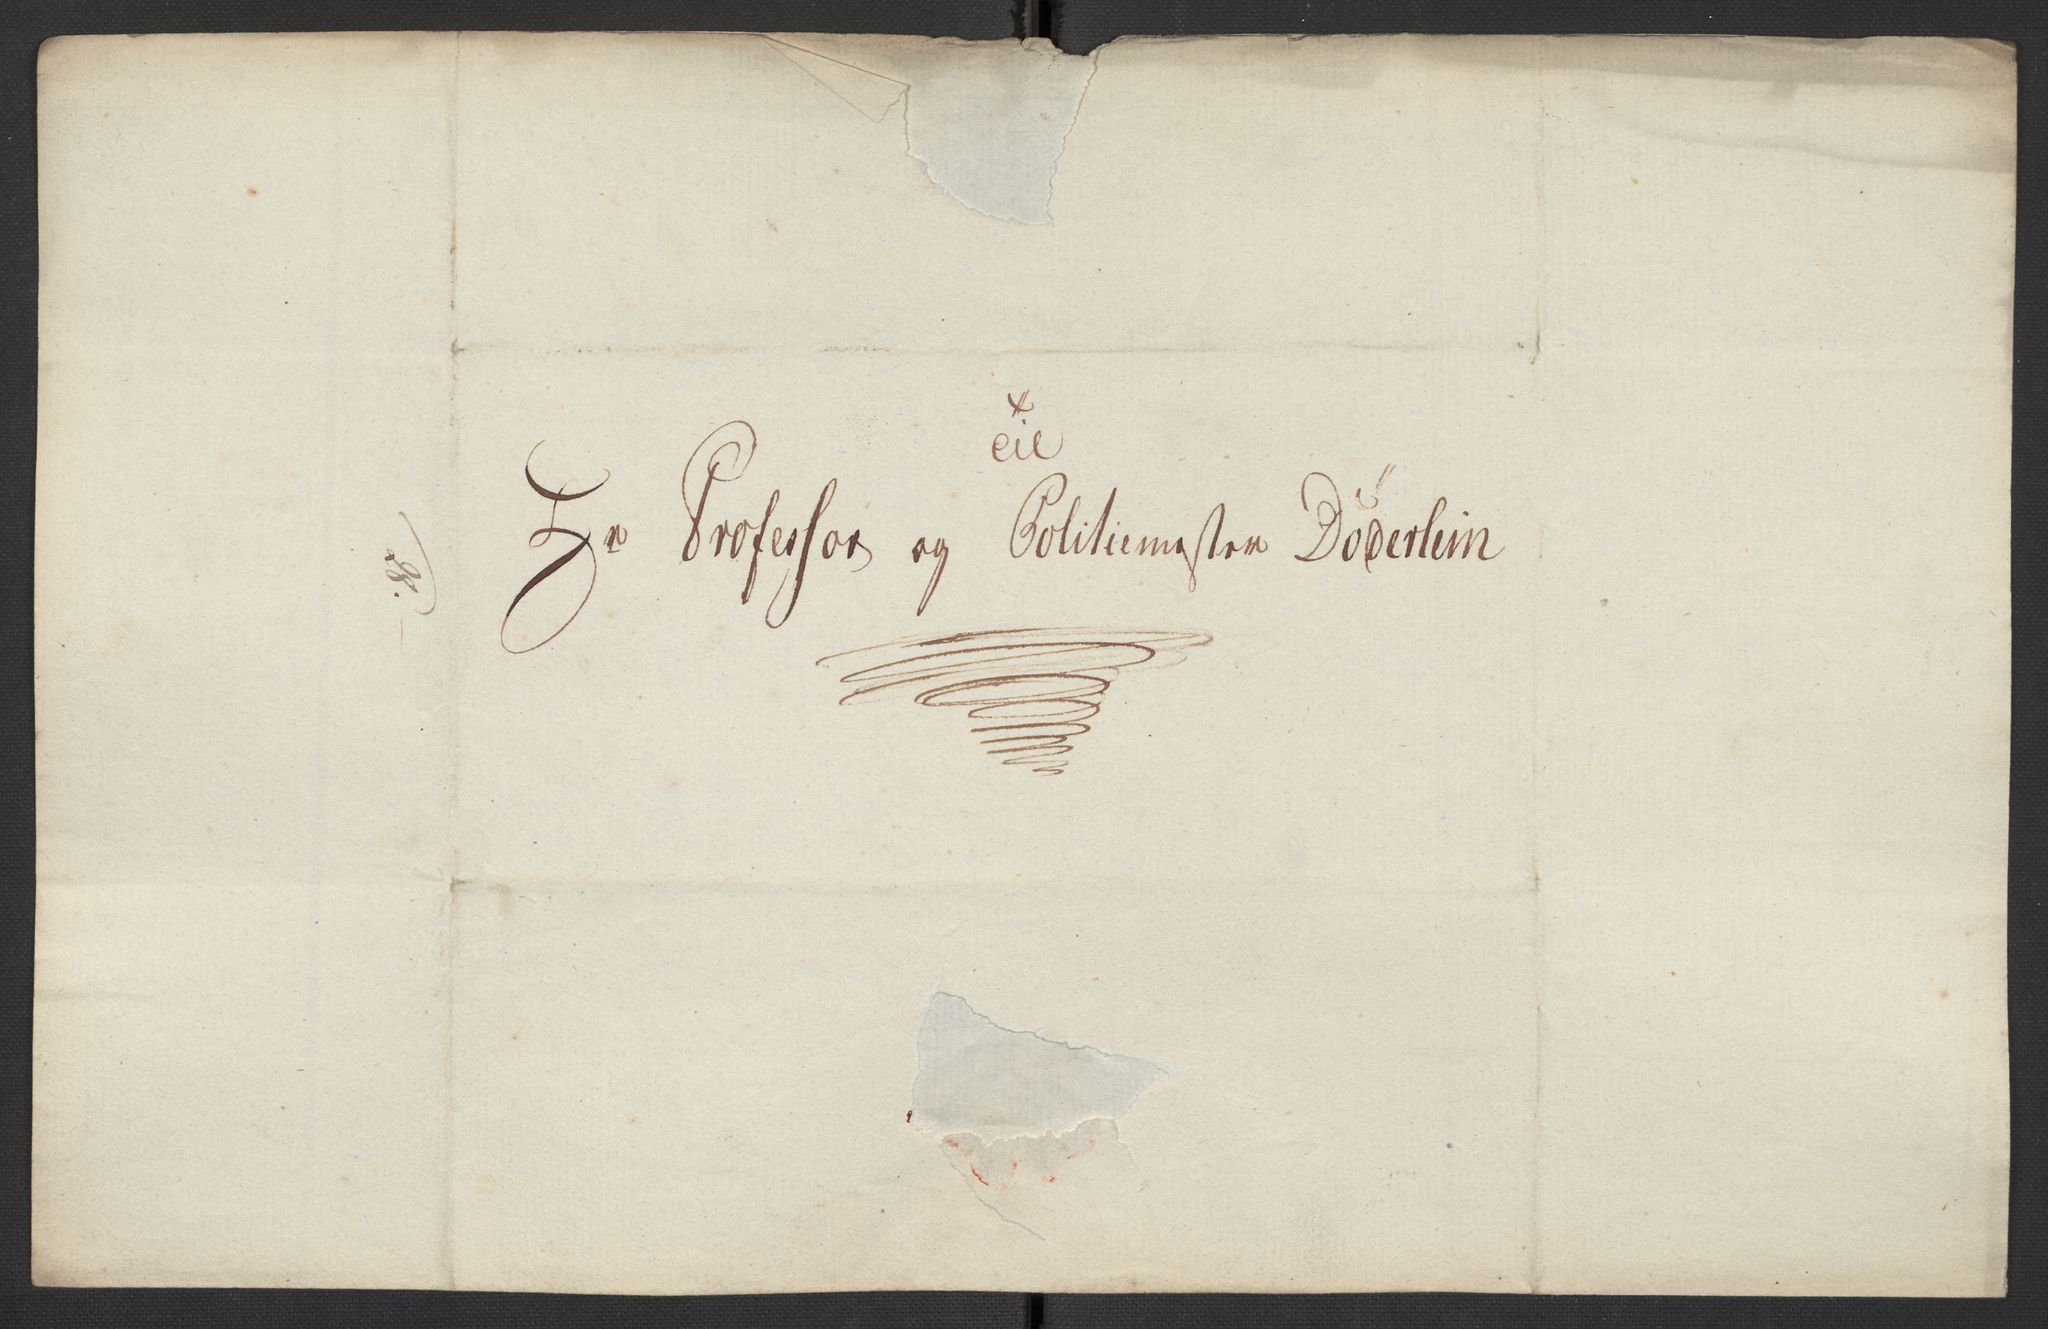 til
Hr Professor og Politiemester Döderlein